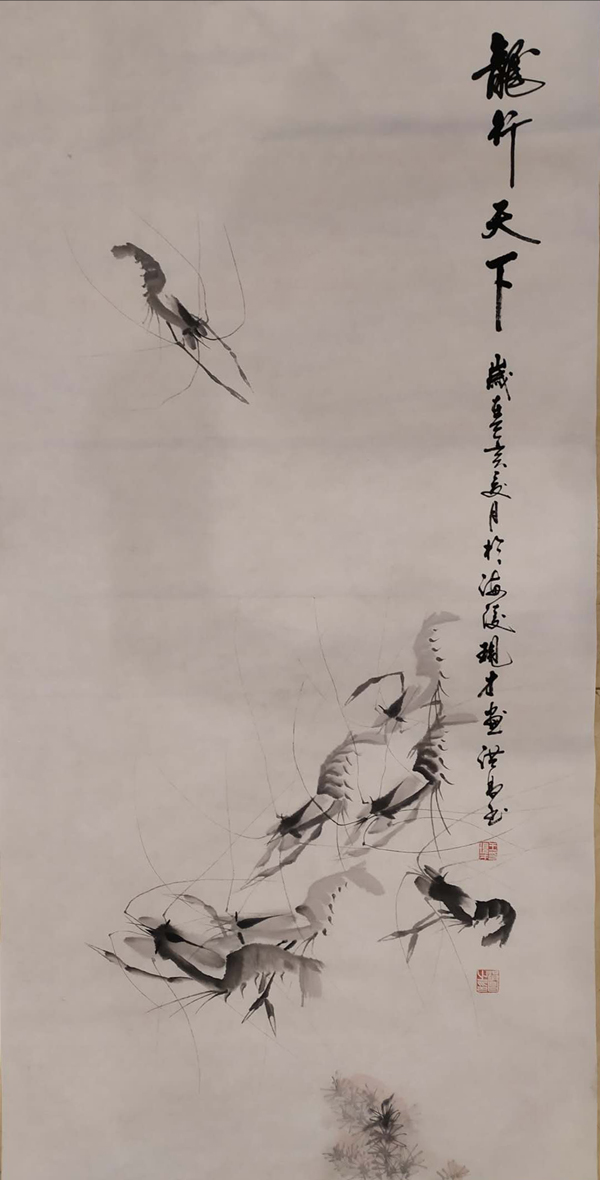 龍行天下 歲在己亥夏月於海陵 才畫 洪 书